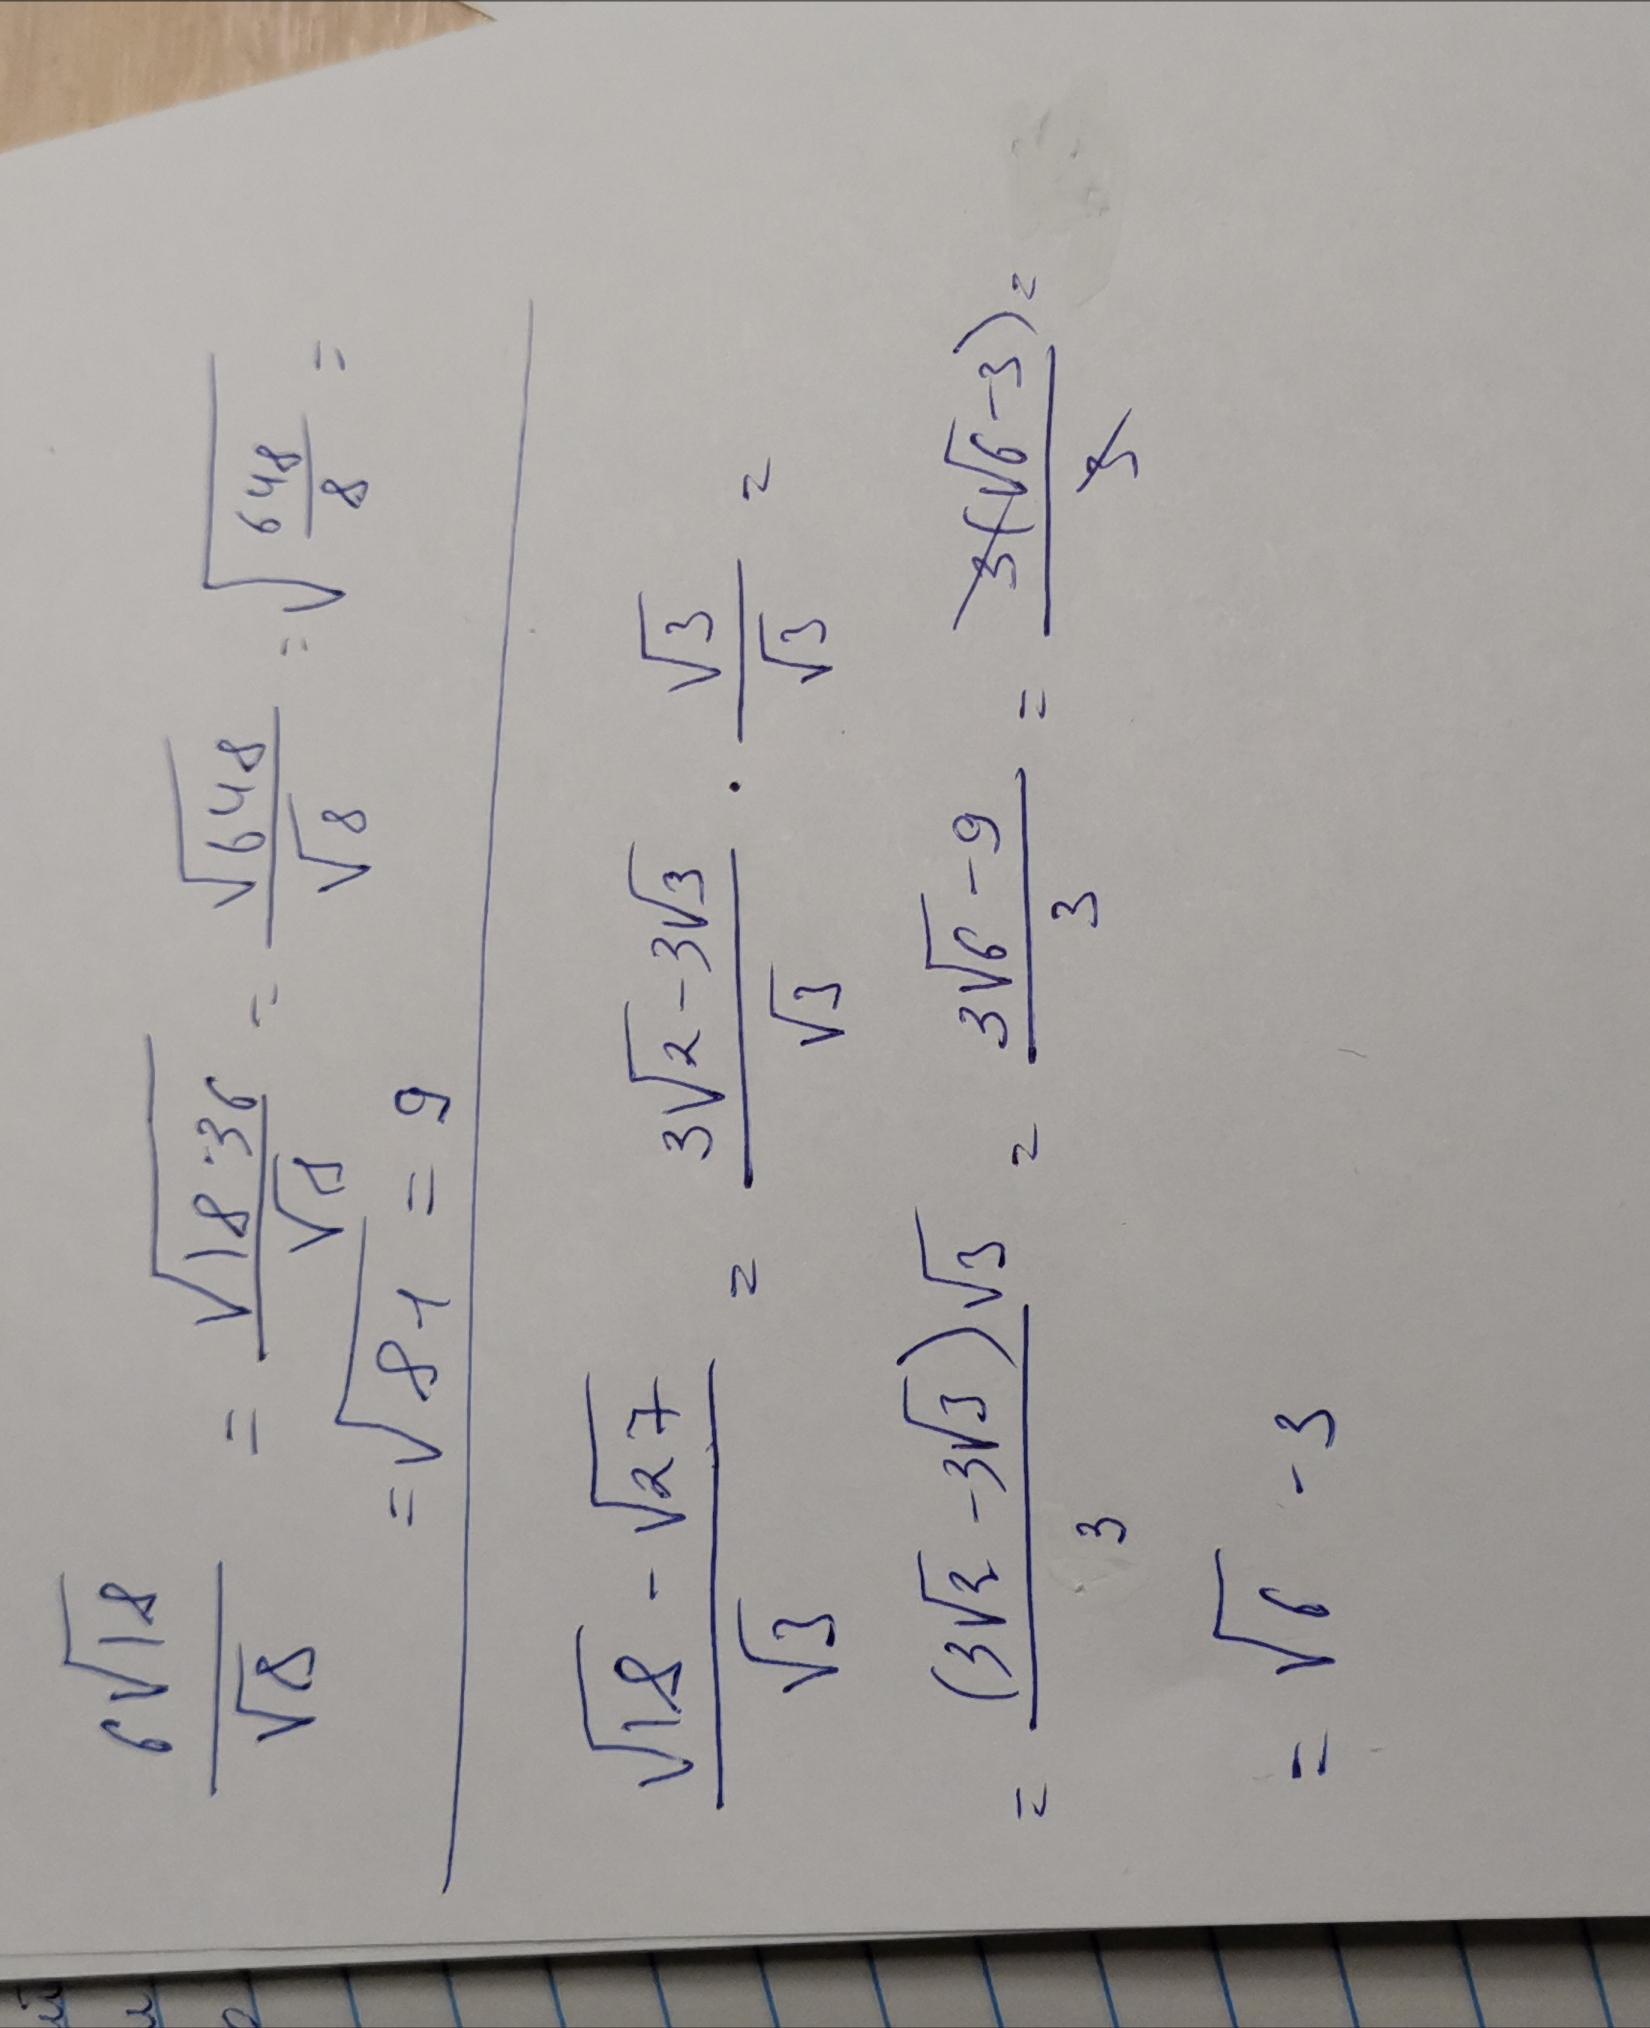 6√18/√8 = √(18·36)/√8 = √648/√8 = √(648/8) =
= √81 = 9
(√18 - √27)/√3 = (3√2 - 3√3)/√3 · √3/√3 =
= (3√2 - 3√3)√3/3 = (3√6 - 9)/3 = 3(√6 - 3)/3 =
= √6 - 3